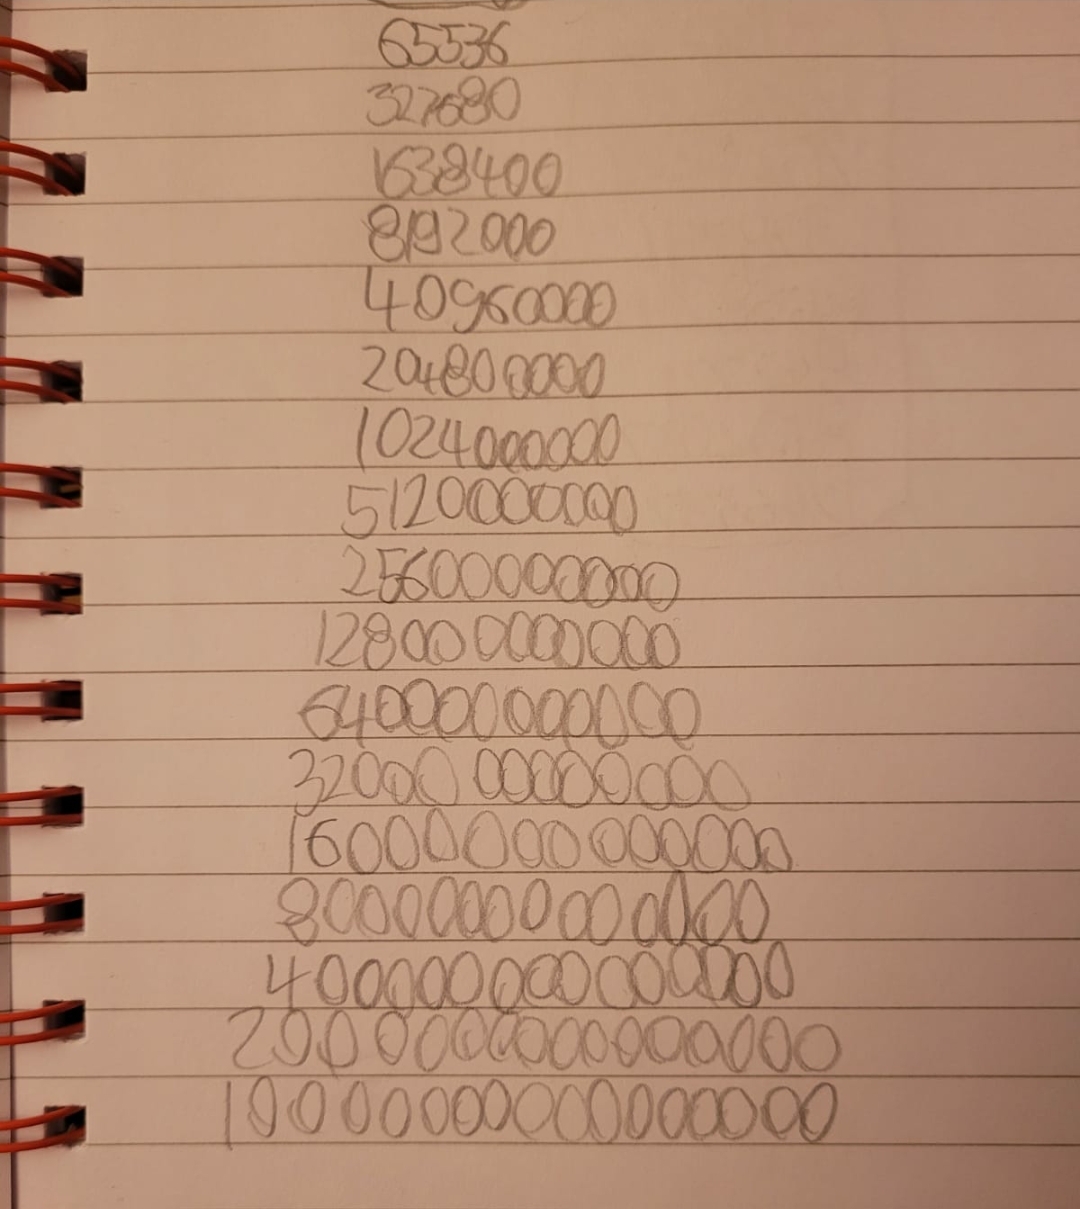 65536
327680
1638400
8192000
40960000
204800000
1024000000
5120000000
25600000000
128000000000
640000000000
3200000000000
16000000000000
80000000000000
400000000000000
2000000000000000
10000000000000000